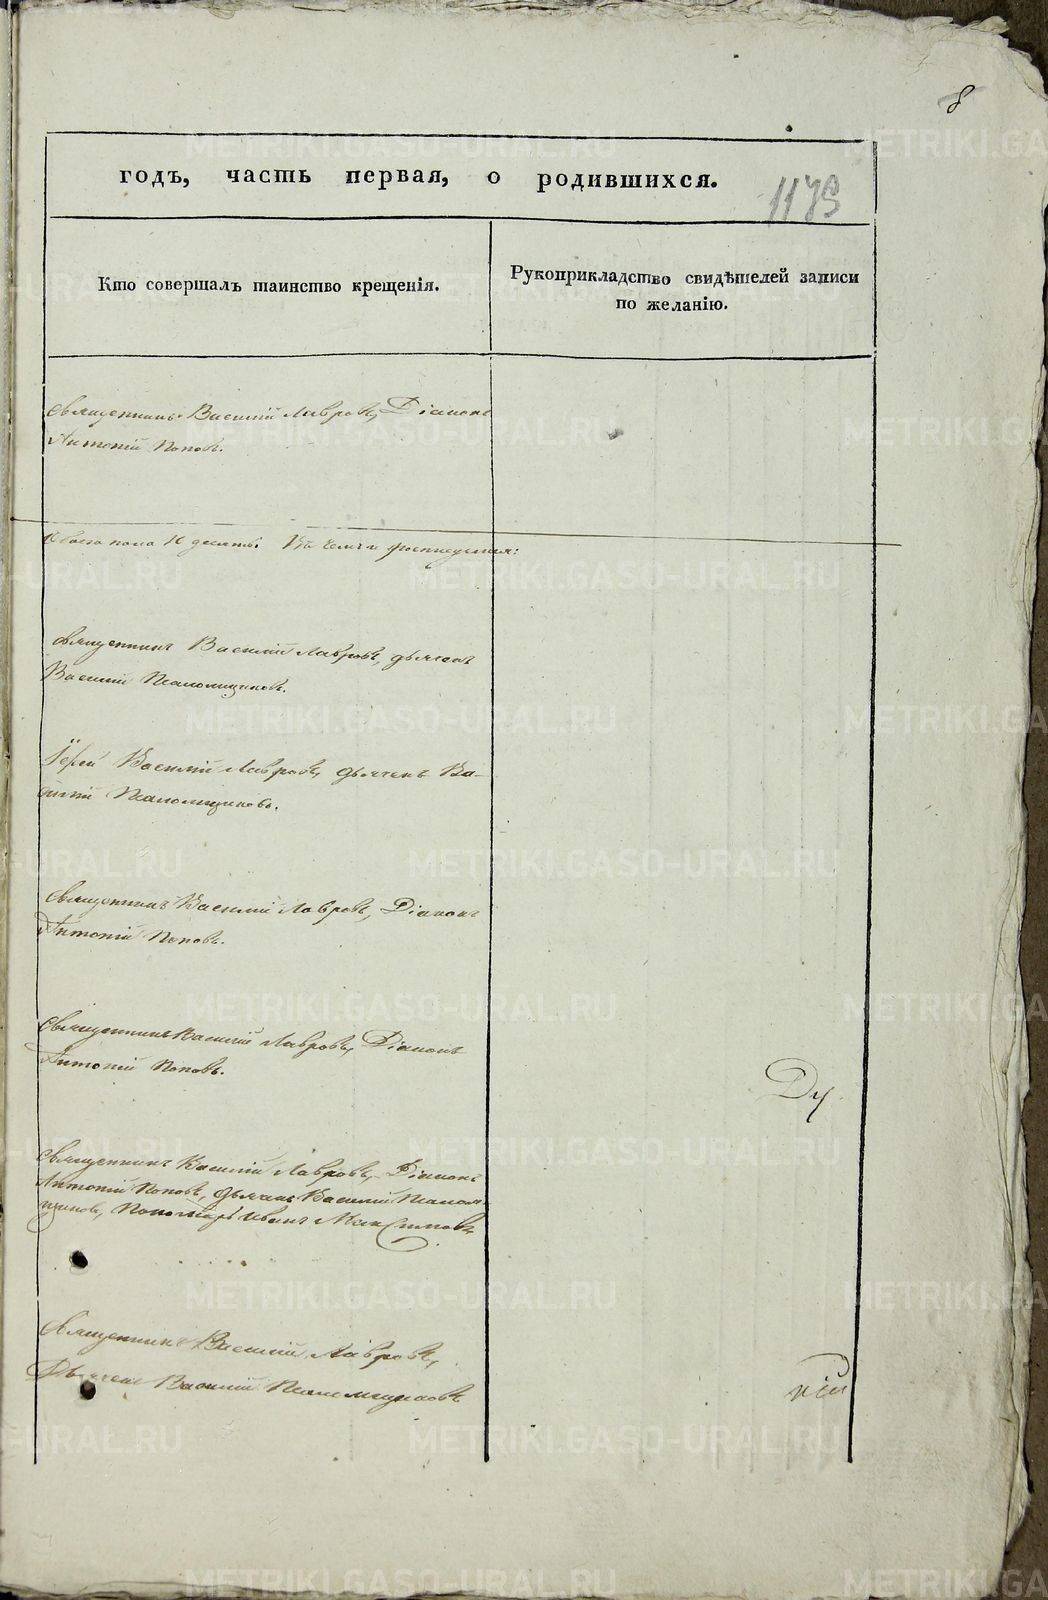 8
годъ, часть первая, о родившихся.
1175
Кто совершалъ таинство крещенія.
Рукоприкладство свидѣтелей записи
по желанію.
Священникъ Василій Лавровъ, Діаконъ
Антоній Поповъ.
пола 10 десять.
Священникъ Василій Лавровъ, дьячекъ
Василій Паломщиковъ.
Іерей Василій Лавровъ, дьячекъ Ва-
силій Паломщиковъ.
Священникъ Василій Лавровъ, Діаконъ
Антоній Поповъ.
Священникъ Василій Лавровъ, Діаконъ
Антоній Поповъ.
Ду
Священникъ Василій Лавровъ, Діаконъ
Антоній Поповъ, дьячекъ Василій Палом-
щиковъ, Пономарь Иванъ Максимовъ
Священникъ Василій Лавровъ,
Дьячекъ Василій Паломщиковъ
METRIKI.GASO-URAL.RU